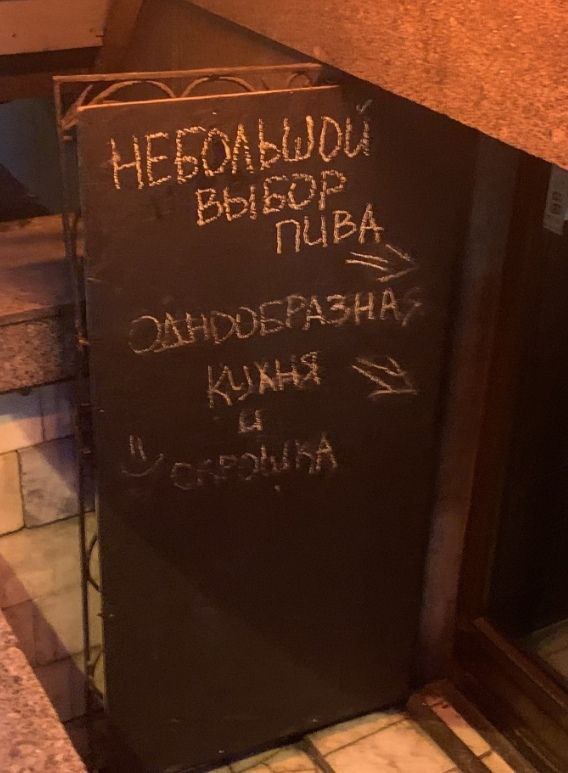 НЕБОЛЬШОЙ
ВЫБОР
ПИВА
ОДНООБРАЗНАЯ
КУХНЯ
И
ОКРОШКА